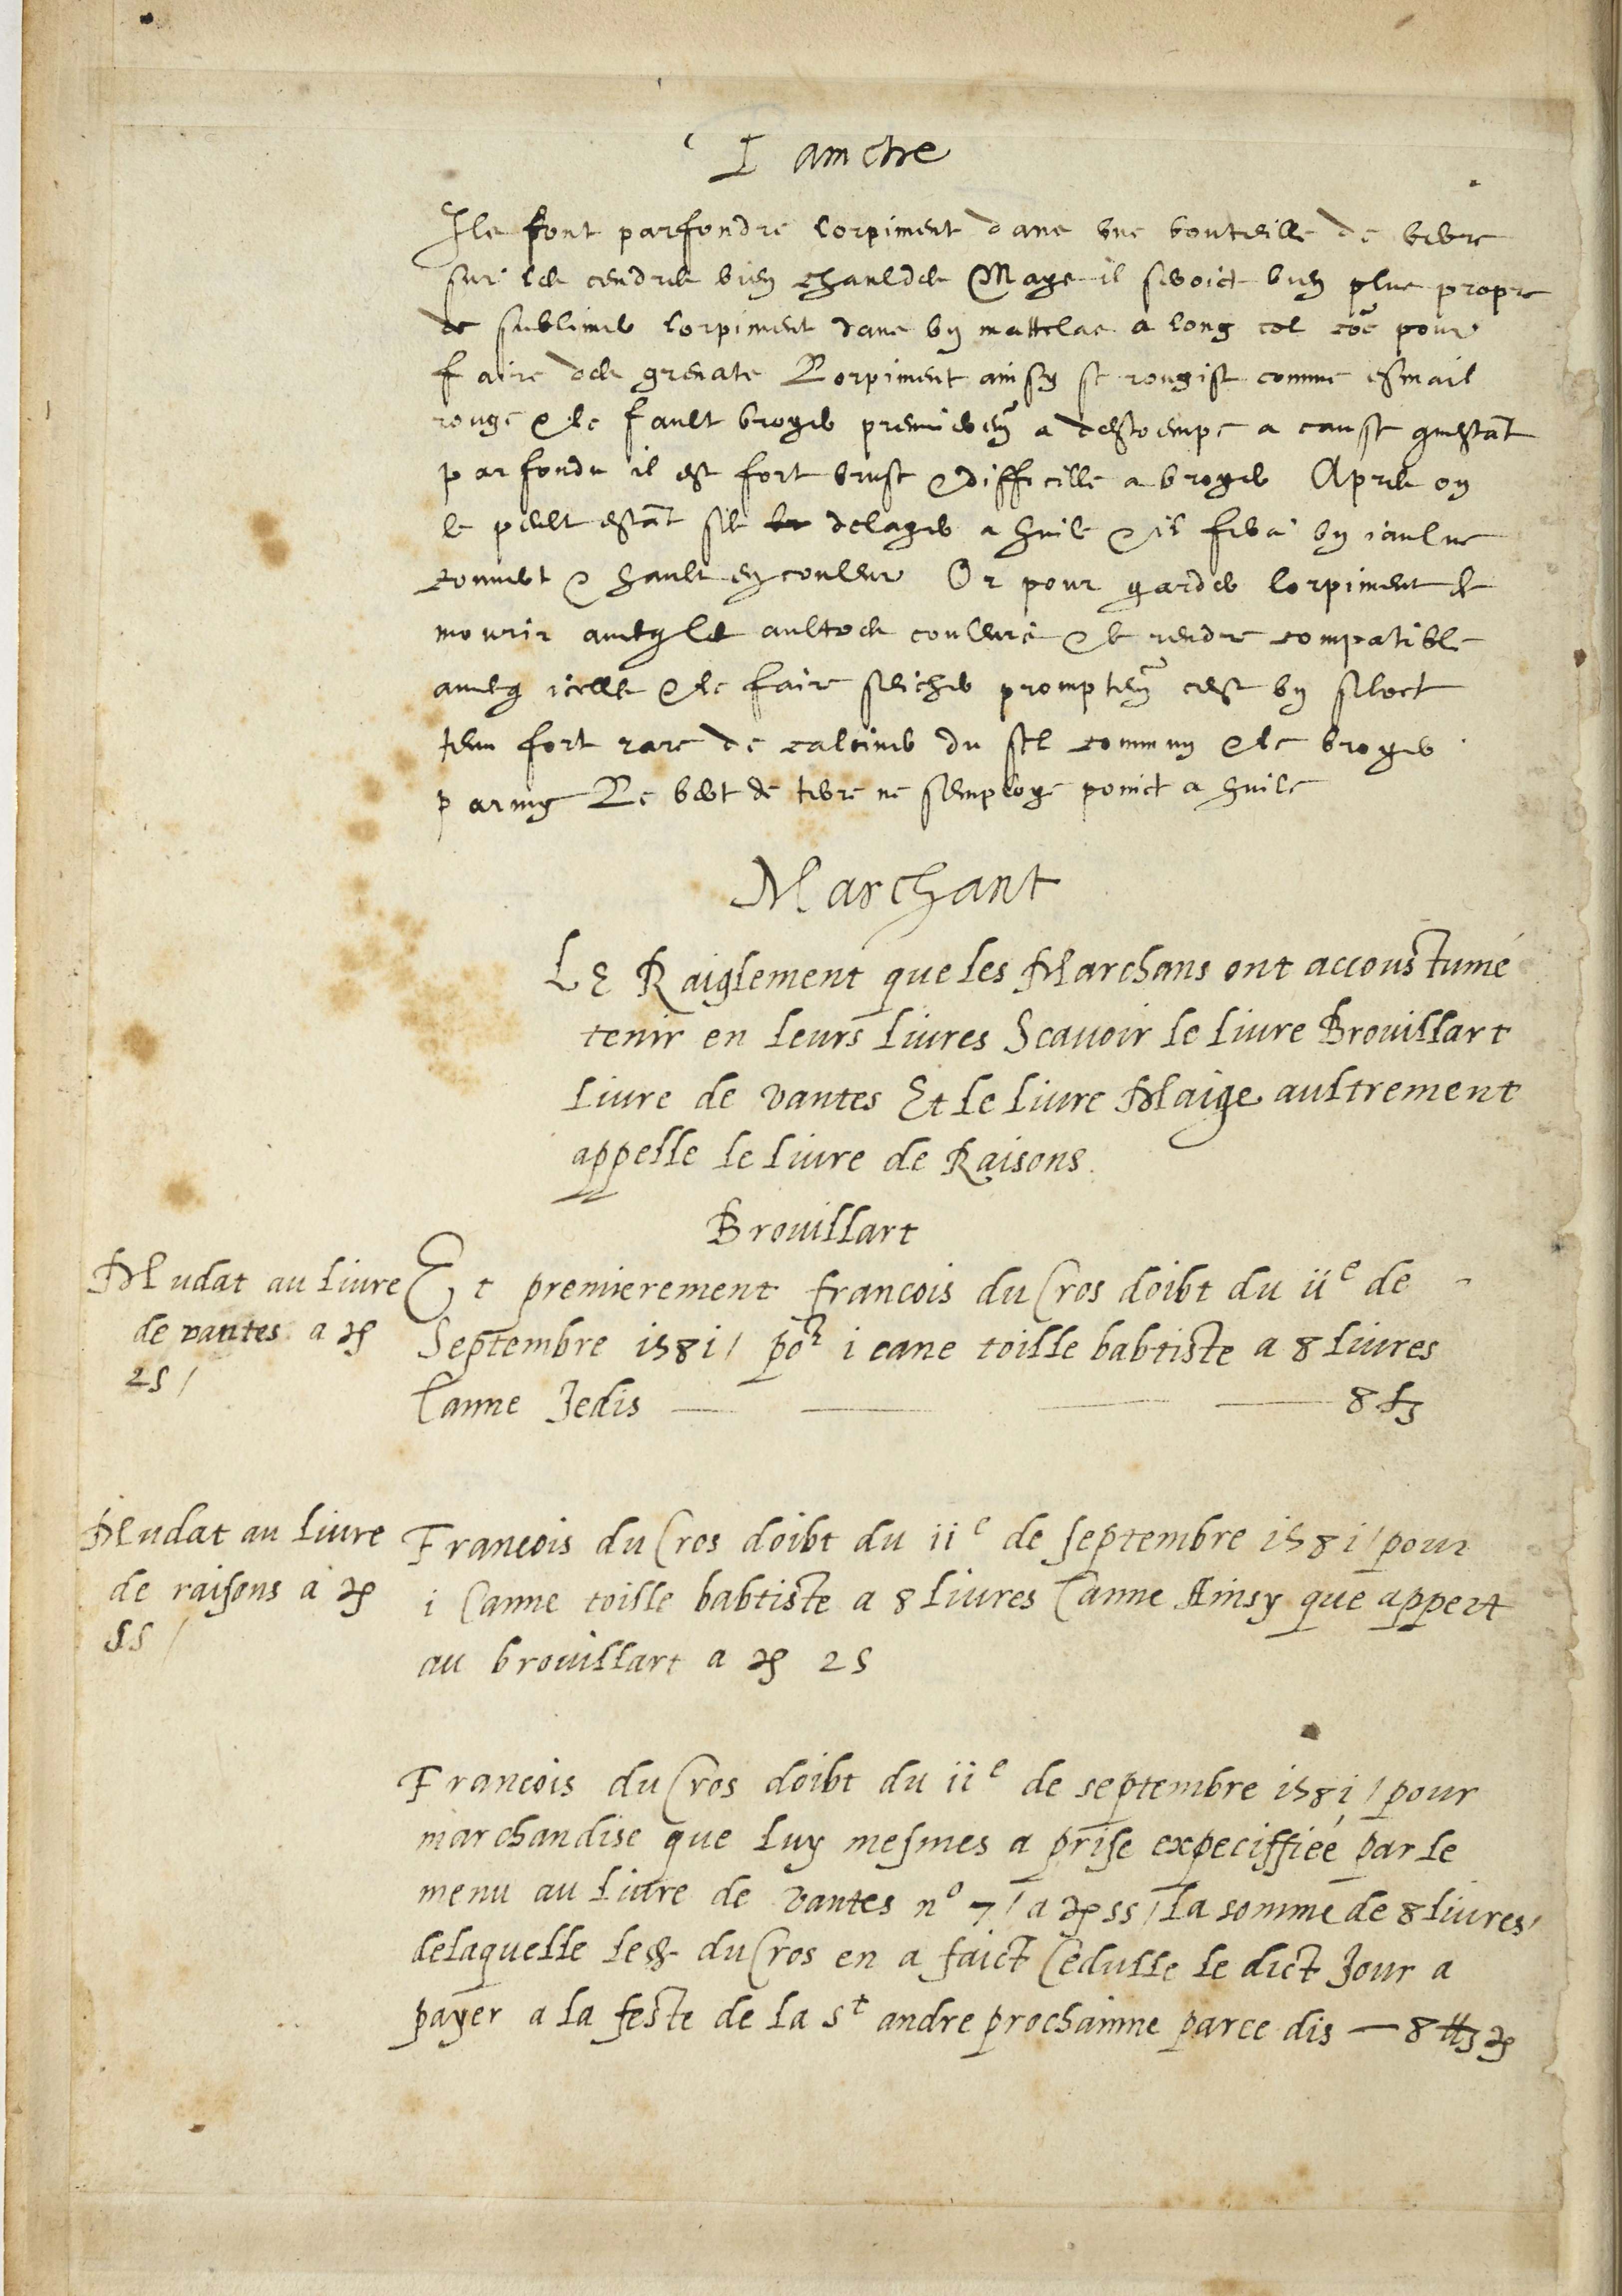 Painctre
Ils font parfondre lorpiment dans une bouteille de verre
sur les cendres bien chauldes Mays il seroict bien plus propre
de sublimer lorpiment dans un mattelas a long col coe pour
faire des grenats Lorpiment ainsy se rougist comme esmail
rouge & le fault broyer premierem a destrempe a cause questat
parfondu il est fort brusc & difficille a broyer Apres on
le peult estat sec delayer a huile & il fera un iaulne
couvert & hault en couleur Or pour garder lorpiment de
mourir avecq les aultres couleurs & le rendre compatible
avecq icelles & le faire seicher promptem cest un secret
tenu fort rare de calciner du sel commun & le broyer
parmy Le vert de terre ne semploye poinct a huile
Marchant
LE Raiglement que les Marchans ont accoustumé
tenir en leurs livres Scavoir le livre Brouillart
Livre de vantes Et le livre Maige aultrement
appelle le livre de Raisons
Brouillart
Mudat au livre
de vantes a ꝭ
25 /
Et premierement francois du Cros doibt du iie de
Septembre i58i / por i cane toille babtiste a 8 livres
Canne Jedis — — — — 8 ₶
Mudat au livre
de raisons a ꝭ
55 /
Francois du Cros doibt du iie de septembre i58i / pour
i Canne toille babtiste a 8 livres Canne Ainsy que appert
au brouillart a ꝭ 25
Francois du Cros doibt du iie de septembre i58i / pour
marchandise que luy mesmes a prise expeciffiée par le
menu au livre de vantes no 7 / a ꝭ 55 / La somme de 8 livres /
delaquelle led du Cros en a faict Cedulle le dict Jour a
payer a la feste de la St andre prochainne parce dis — 8 ₶ ꝭ